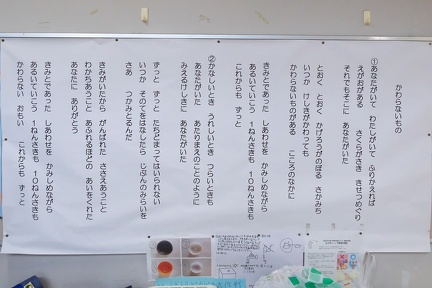 かわらないもの
①あなたがいて わたしがいて ふりかえれば
えがおがある さくらがさき きせつめぐり
それでもそこに あなたがいた
とおく とおく かげろうがのぼる さかみち
いつか けしきがかわっても
かわらないものがある こころのなかに
きみとであった しあわせを かみしめながら
あるいていこう 1ねんさきも 10ねんさきも
これからも ずっと
②かなしいとき うれしいとき つらいときも
あなたがいた あたりまえのことのように
みえるけしきに あなたがいた
ずっと ずっと たちどまってはいられない
いつか そのてをはなしたら じぶんのみらいを
さあ つかみとるんだ
きみがいたから がんばれた ささえあうこと
わかちあうこと あふれるほどの あいをくれた
あなたに ありがとう
きみとであった しあわせを かみしめながら
あるいていこう 1ねんさきも 10ねんさきも
かわらない おもい これからも ずっと